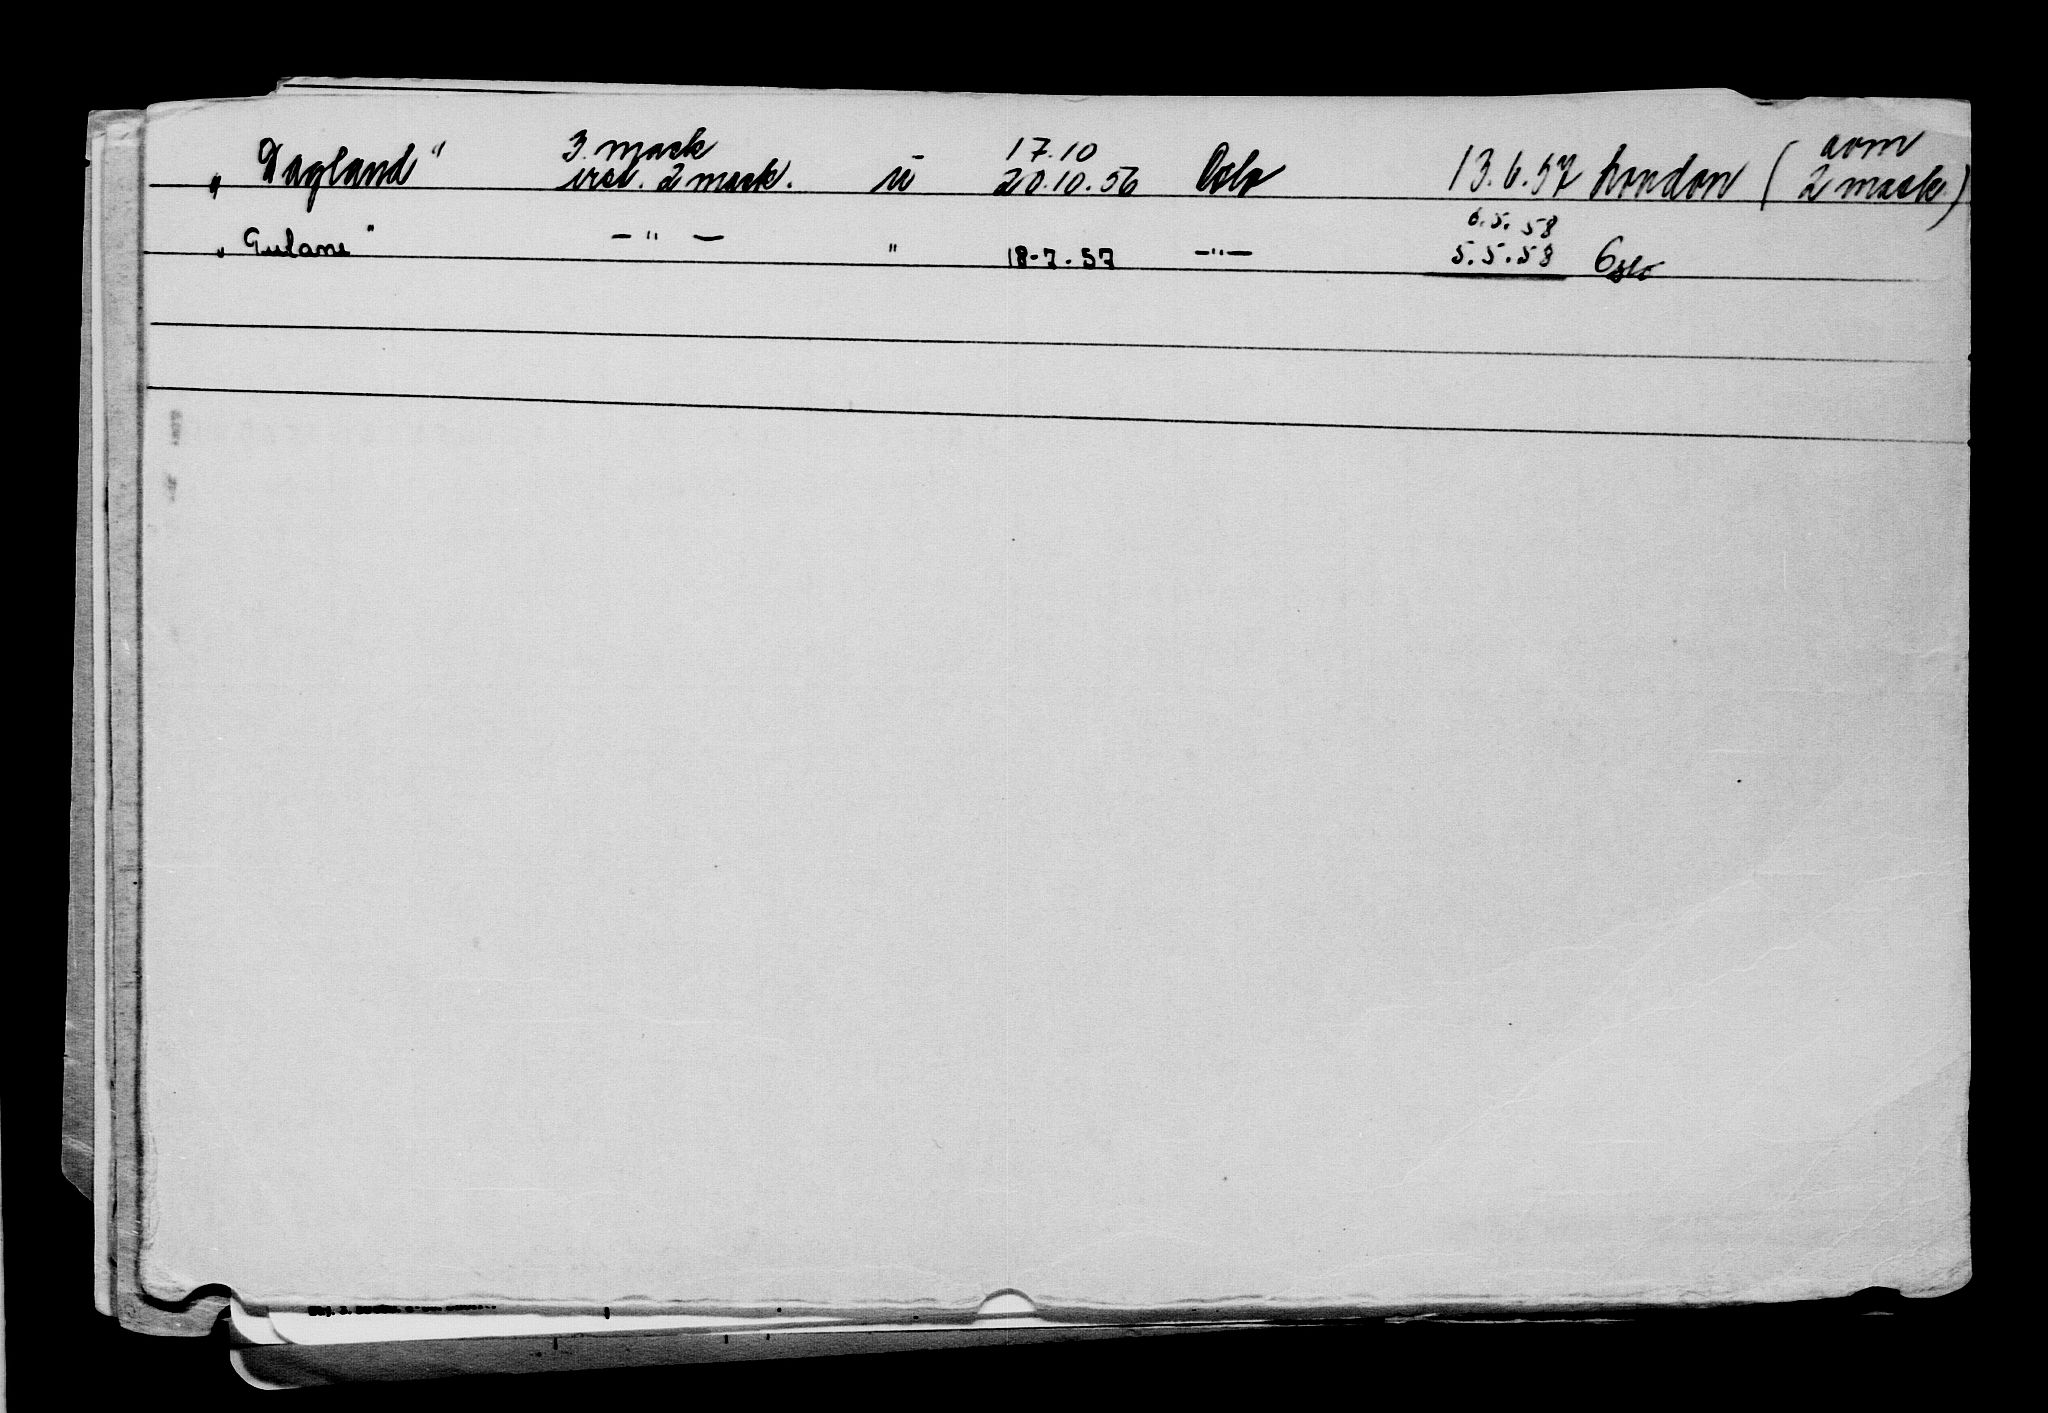 3. mask 17.10 som
„Dagland" irst. 2 mask. u 20.10.56 Oslo 13.6.57 London ( 2 mask.)
6.5.58
„Gulane" — " — " 18-7-57 — " — 5.5.58 Oslo